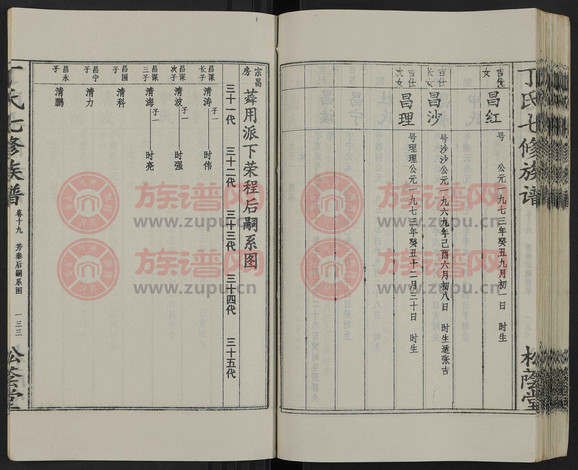 丁氏七修族谱
松荫堂
吉仕女 昌红
号 公元一九七三年癸丑九月初一日 时生
吉仕长女 昌沙
号沙沙公元一九六九年己酉六月初八日 时生适张吉
吉仕次女 昌理
号理理公元一九七三年癸丑十二月三十日 时生
宗昌房 葬用派下荣程后嗣系图
三十一代 三十二代 三十三代 三十四代 三十五代
昌谋长子 清涛 子一 时伟
昌谋次子 清波 子一 时强
昌谋三子 清海 子一 时亮
昌国子 清科
昌宁子 清力
昌永子 清鹏
丁氏七修族谱 卷十九 芳泰后嗣系图 一三三
松荫堂
族谱网
www.zupu.cn
族谱网
www.zupu.cn
族谱网
www.zupu.cn
族谱网
www.zupu.cn
族谱网
www.zupu.cn
族谱网
www.zupu.cn